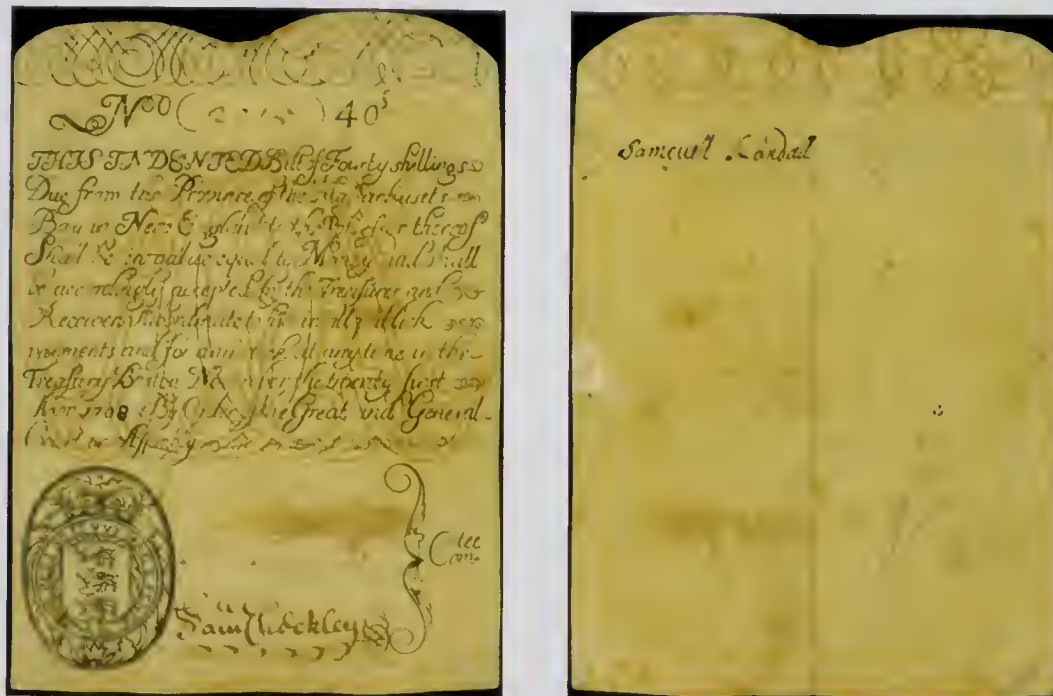 No ( ) 40s
THIS INDENTED Bill of Fourty shillings
Due from the Province of the Massachusets
Bay in New England to the Possessor thereof
Shall be in value equal to Money and shall
be accordingly accepted by the Treasurer and
Receivers subordinate to him in all publick
payments and for any Stock at any time in the
Treasury Boston November the twenty first
1708 By Order of the Great and General
Court or Assembly
Com tee
Sam Checkley
Samuell